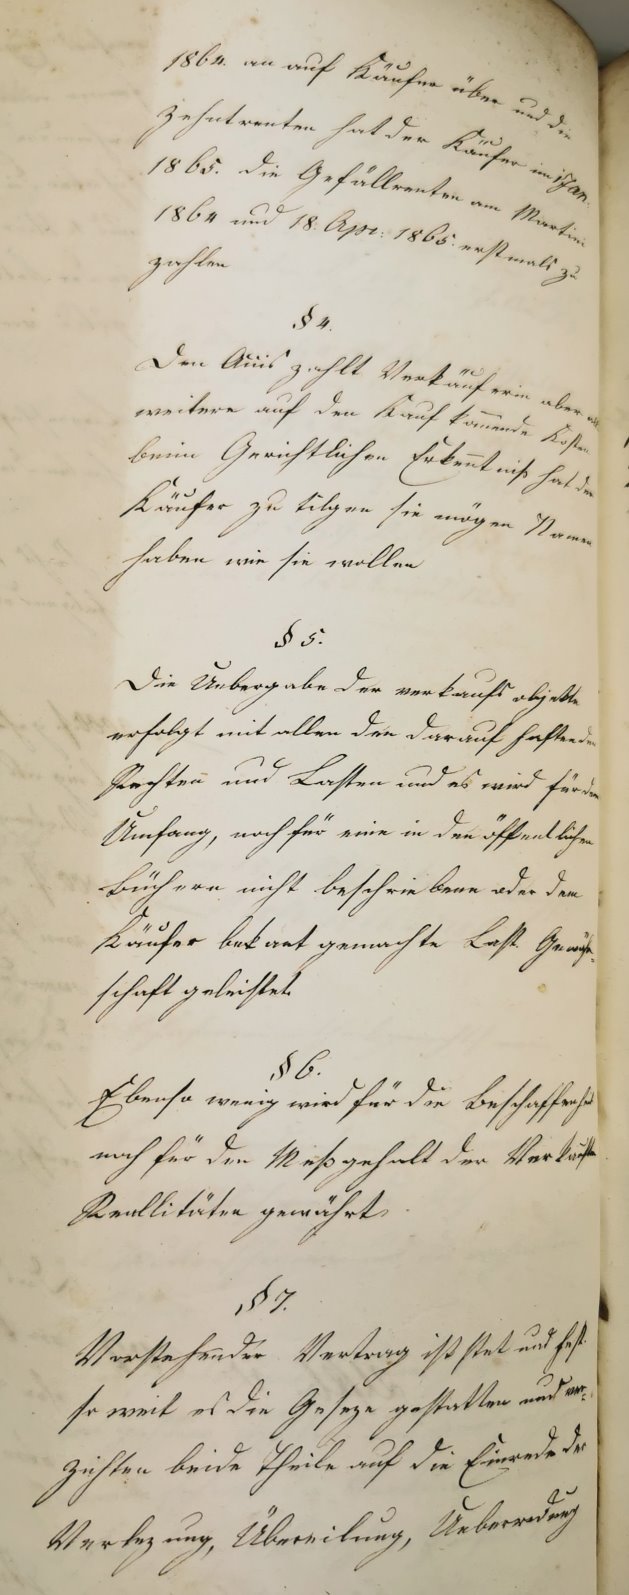 1864. an auf Käufer über und die
Zehntrenten hat der Käufer im Jan.
1865. die Gefällrenten am Martini
1864 und 18. Apr: 1865. erstmals zu
zahlen
§ 4.
Den Accis zahlt Verkäuferin aber alle
weitere auf den Kauf kom̅ende Kosten
beim Gerichtlichen Erken̅tniß hat der
Käufer zu tilgen sie mögen Namen
haben wie sie wollen
§ 5.
Die Uebergabe der verkaufs objekte
erfolgt mit allen den darauf haftenden
Rechten und Lasten und es wird für den
Umfang, noch für eine in den öffentlichen
Büchern nicht beschriebene oder dem
Käufer bekant gemachte Last Gewähr-
schaft geleistet.
§ 6.
Ebenso wenig wird für die Beschaffenheit
noch für den Meßgehalt der Verkauften
Reallitäten gewährt.
§ 7.
Vorstehender Vertrag ist stet und fest
so weit es die Geseze gestatten und ver-
zichten beide Theile auf die Einrede der
Verlezung, Übereilung, Ueberredung